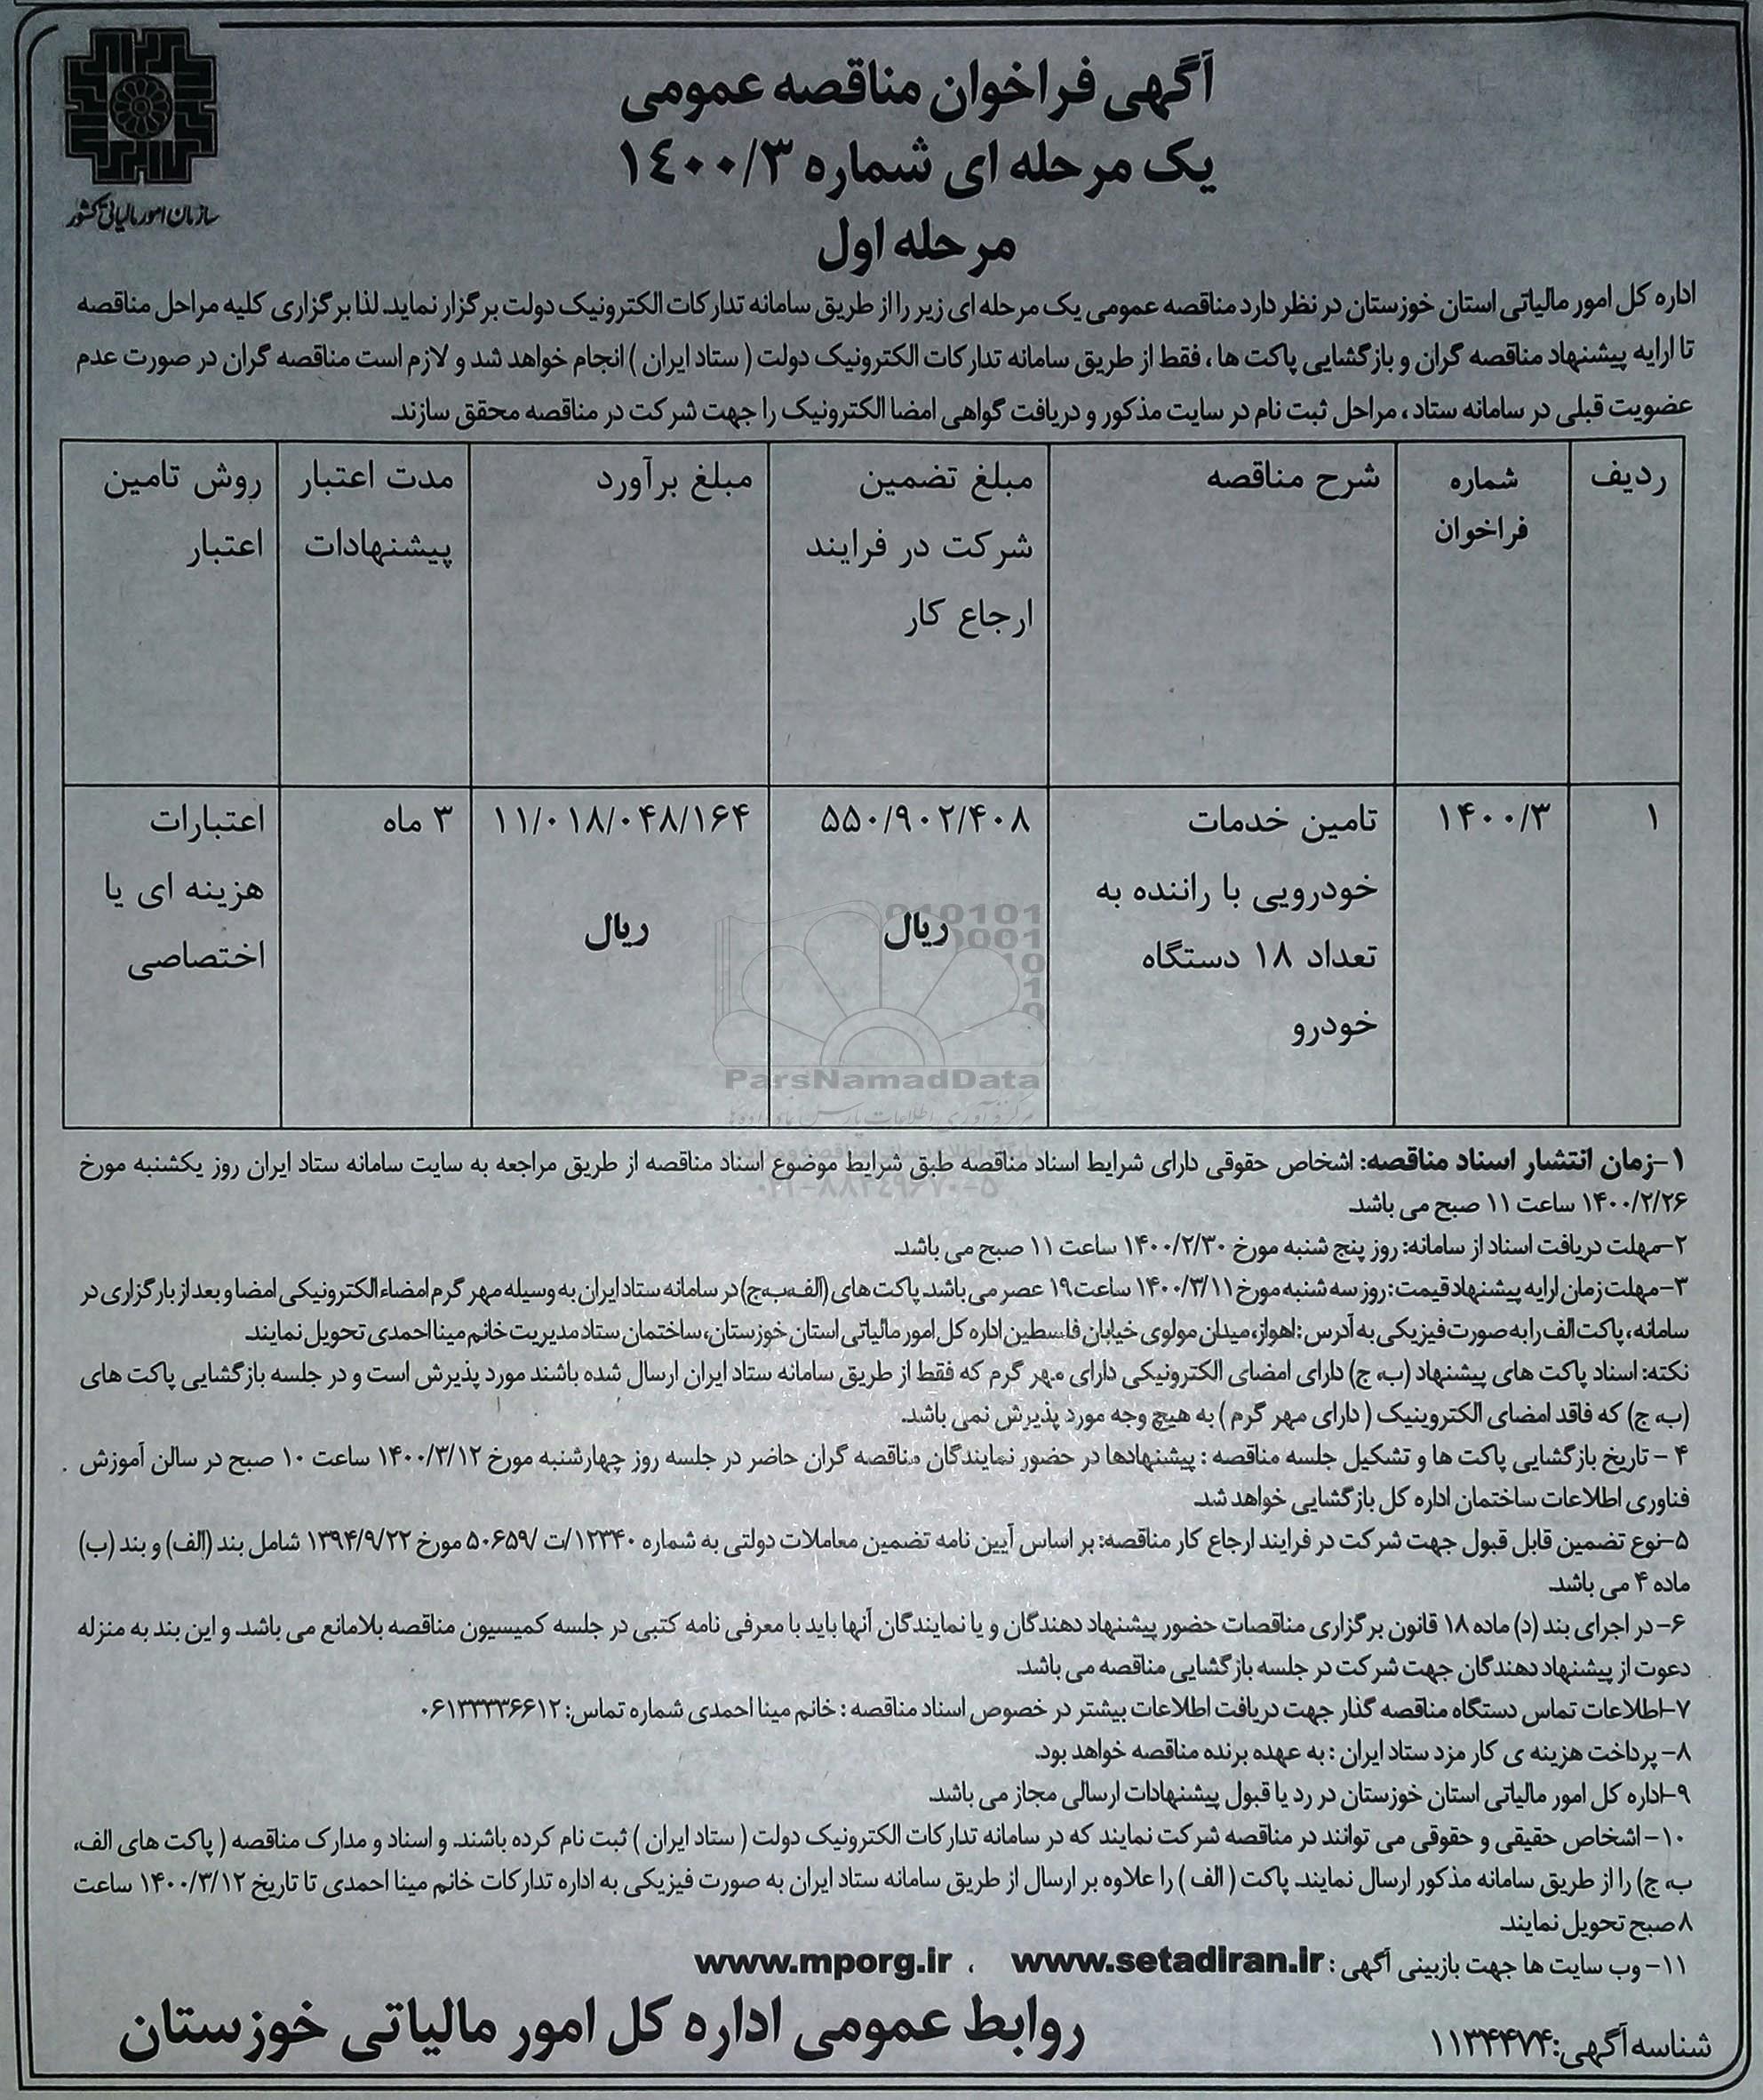 آگهی فراخوان مناقصه عمومی
یک مرحله ای شماره ۱۴۰۰/۳
مرحله اول
سازمان امور مالیاتی کشور
اداره کل امور مالیاتی استان خوزستان در نظر دارد مناقصه عمومی یک مرحله ای زیر را از طریق سامانه تدارکات الکترونیک دولت برگزار نماید. لذا برگزاری کلیه مراحل مناقصه
تا ارایه پیشنهاد مناقصه گران و بازگشایی پاکت ها ، فقط از طریق سامانه تدارکات الکترونیک دولت ( ستاد ایران ) انجام خواهد شد و لازم است مناقصه گران در صورت عدم
عضویت قبلی در سامانه ستاد ، مراحل ثبت نام در سایت مذکور و دریافت گواهی امضا الکترونیک را جهت شرکت در مناقصه محقق سازند.
ردیف
شماره
فراخوان
شرح مناقصه
مبلغ تضمین
شرکت در فرایند
ارجاع کار
مبلغ برآورد
مدت اعتبار
پیشنهادات
روش تامین
اعتبار
۱
۱۴۰۰/۳
تامین خدمات
خودرویی با راننده به
تعداد ۱۸ دستگاه
خودرو
۵۵۰/۹۰۲/۴۰۸
ریال
۱۱/۰۱۸/۰۴۸/۱۶۴
ریال
۳ ماه
اعتبارات
هزینه ای یا
اختصاصی
ParsNamadData
۱-زمان انتشار اسناد مناقصه: اشخاص حقوقی دارای شرایط اسناد مناقصه طبق شرایط موضوع اسناد مناقصه از طریق مراجعه به سایت سامانه ستاد ایران روز یکشنبه مورخ
۱۴۰۰/۲/۲۶ ساعت ۱۱ صبح می باشد.
۲-مهلت دریافت اسناد از سامانه: روز پنج شنبه مورخ ۱۴۰۰/۲/۳۰ ساعت ۱۱ صبح می باشد.
۳-مهلت زمان ارایه پیشنهاد قیمت: روز سه شنبه مورخ ۱۴۰۰/۳/۱۱ ساعت ۱۹ عصر می باشد. پاکت های (الف،ب،ج) در سامانه ستاد ایران به وسیله مهر گرم امضاء الکترونیکی امضا و بعد از بارگزاری در
سامانه، پاکت الف را به صورت فیزیکی به آدرس: اهواز، میدان مولوی خیابان فلسطین اداره کل امور مالیاتی استان خوزستان، ساختمان ستاد مدیریت خانم مینا احمدی تحویل نمایند.
نکته: اسناد پاکت های پیشنهاد (ب، ج) دارای امضای الکترونیکی دارای مهر گرم که فقط از طریق سامانه ستاد ایران ارسال شده باشند مورد پذیرش است و در جلسه بازگشایی پاکت های
(ب، ج) که فاقد امضای الکترونیک ( دارای مهر گرم ) به هیچ وجه مورد پذیرش نمی باشد.
۴ - تاریخ بازگشایی پاکت ها و تشکیل جلسه مناقصه : پیشنهادها در حضور نمایندگان مناقصه گران حاضر در جلسه روز چهارشنبه مورخ ۱۴۰۰/۳/۱۲ ساعت ۱۰ صبح در سالن آموزش
فناوری اطلاعات ساختمان اداره کل بازگشایی خواهد شد.
۵-نوع تضمین قابل قبول جهت شرکت در فرایند ارجاع کار مناقصه: بر اساس آیین نامه تضمین معاملات دولتی به شماره ۱۲۳۴۰/ت /۵۰۶۵۹ مورخ ۱۳۹۴/۹/۲۲ شامل بند (الف) و بند (ب)
ماده ۴ می باشد.
۶- در اجرای بند (د) ماده ۱۸ قانون برگزاری مناقصات حضور پیشنهاد دهندگان و یا نمایندگان آنها باید با معرفی نامه کتبی در جلسه کمیسیون مناقصه بلامانع می باشد. و این بند به منزله
دعوت از پیشنهاد دهندگان جهت شرکت در جلسه بازگشایی مناقصه می باشد.
۷-اطلاعات تماس دستگاه مناقصه گذار جهت دریافت اطلاعات بیشتر در خصوص اسناد مناقصه : خانم مینا احمدی شماره تماس: ۰۶۱۳۳۳۳۶۶۱۲
۸- پرداخت هزینه ی کار مزد ستاد ایران : به عهده برنده مناقصه خواهد بود.
۹-اداره کل امور مالیاتی استان خوزستان در رد یا قبول پیشنهادات ارسالی مجاز می باشد.
۱۰- اشخاص حقیقی و حقوقی می توانند در مناقصه شرکت نمایند که در سامانه تدارکات الکترونیک دولت ( ستاد ایران ) ثبت نام کرده باشند. و اسناد و مدارک مناقصه ( پاکت های الف،
ب، ج) را از طریق سامانه مذکور ارسال نمایند. پاکت ( الف ) را علاوه بر ارسال از طریق سامانه ستاد ایران به صورت فیزیکی به اداره تدارکات خانم مینا احمدی تا تاریخ ۱۴۰۰/۳/۱۲ ساعت
۸ صبح تحویل نمایند.
۱۱- وب سایت ها جهت بازبینی آگهی : www.setadiran.ir ، www.mporg.ir
روابط عمومی اداره کل امور مالیاتی خوزستان
شناسه آگهی: ۱۱۳۴۴۷۴